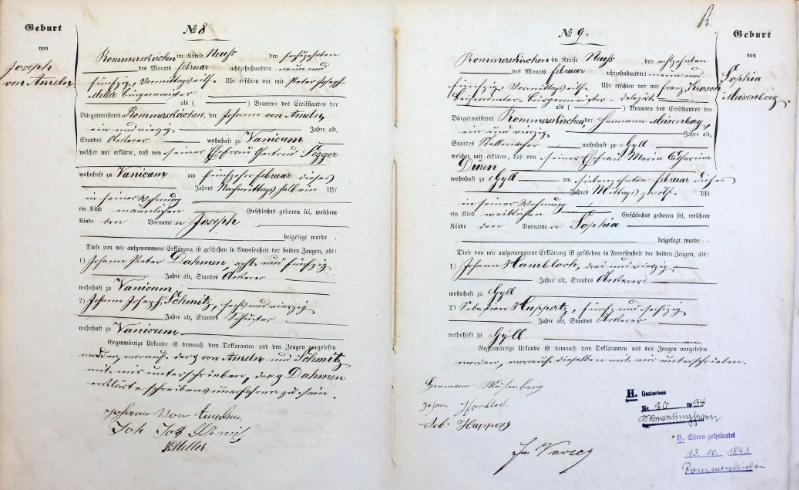 Geburt
von
Joseph
von Ameln
№ 8
Rommerskirchen im Kreise Neuß den fünfzehnten
des Monats Februar achtzehnhundert neun und
fünfzig, Vormittags Uhr erschien vor mir Peter Joseph
Meller Bürgermeister
als ( ) Beamten des Civilstandes der
Bürgermeisterei Rommerskirchen, der Johann von Ameln
ein und vierzig Jahre alt,
Standes Ackerer wohnhaft zu Vanicum
welcher mir erklärte, daß von seiner Ehefrau Gertrud
wohnhaft zu Vanicum am fünfzehn Februar dieses
Jahres Nachmittags halb ein Uhr
in seiner Wohnung
ein Kind männlichen Geschlechts geboren sei, welchem
Kinde den Vorname n Joseph
beigelegt wurde.
Diese von mir aufgenommene Erklärung ist geschehen in Anwesenheit der beiden Zeugen, als:
1) Johann Peter Dahmen acht und fünfzig
Jahre alt, Standes Ackerer
wohnhaft zu Vanicum
2) Johann Joseph Schmitz, sechs und vierzig
Jahre alt, Standes
wohnhaft zu Vanicum
Gegenwärtige Urkunde ist demnach dem Deklaranten und den Zeugen vorgelesen
worden, wonach der von Ameln und Schmitz
mit mir unterschrieben, der Dahmen
erklärte schreibensunerfahren zu sein.
Johann von Ameln
Joh Jos Schmitz
Meller
B.
№ 9.
Geburt
von
Sophia
Meisenberg
Rommerskirchen im Kreise Neuß den achtzehnten
des Monats Februar achtzehnhundert neun und
fünfzig, Vormittags Uhr erschien vor mir Franz
Bürgermeister
als ( ) Beamten des Civilstandes der
Bürgermeisterei Rommerskirchen, der Hermann
ein und vierzig Jahre alt,
Standes wohnhaft zu Gyll
welcher mir erklärte, daß von seiner Ehefrau Maria Catharina
Düren
wohnhaft zu Gyll am siebenzehnten Februar dieses
Jahres Mittags zwölf Uhr
in seiner Wohnung
ein Kind weiblichen Geschlechts geboren sei, welchem
Kinde den Vorname n Sophia
beigelegt wurde.
Diese von mir aufgenommene Erklärung ist geschehen in Anwesenheit der beiden Zeugen, als:
1) Johann Hambloch, drei und vierzig
Jahre alt, Standes Ackerer
wohnhaft zu Gyll
2) Huppertz, fünf und sechzig
Jahre alt, Standes Ackerer
wohnhaft zu Gyll.
Gegenwärtige Urkunde ist demnach dem Deklaranten und den Zeugen vorgelesen
worden, wonach dieselben mit mir unterschrieben.
Hermann
Johann Hambloch
Seb: Huppertz
H. Gestorben
Nr. 20 1934
H. Eltern geheiratet
13. 10. 1843
Rommerskirchen